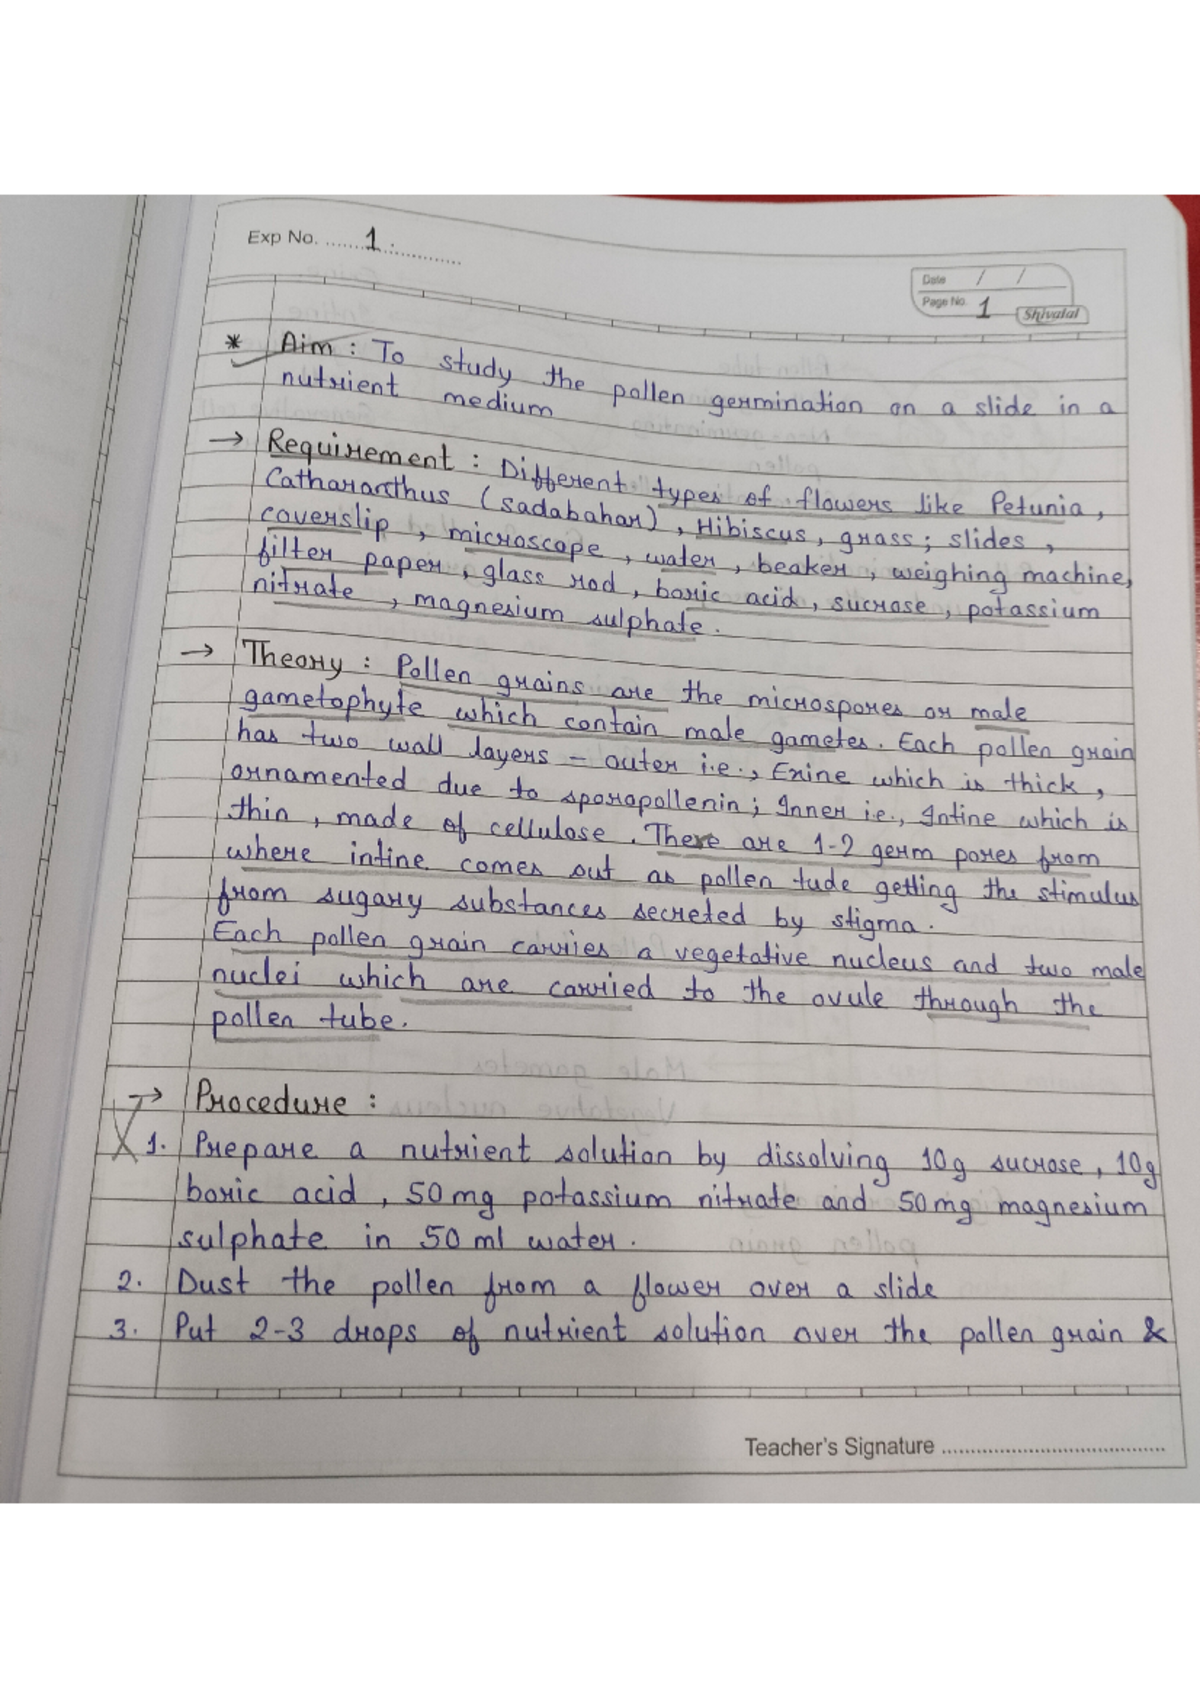 Exp No. 1.
Date / /
Page No. 1
Shivalal
* Aim : To study the pollen germination on a slide in a
nutrient medium
→ Requirement : Different types of flowers like Petunia,
Catharanthus (sadabahar), Hibiscus, grass; slides,
coverslip, microscope, water, beaker, weighing machine,
filter paper, glass rod, boric acid, sucrose, potassium
nitrate, magnesium sulphate.
→ Theory : Pollen grains are the microspores or male
gametophyte which contain male gametes. Each pollen grain
has two wall layers - outer i.e., Exine which is thick,
ornamented due to sporopollenin; Inner i.e., Intine which is
thin, made of cellulose. There are 1-2 germ pores from
where intine comes out as pollen tude getting the stimulus
from sugary substances secreted by stigma.
Each pollen grain carries a vegetative nucleus and two male
nuclei which are carried to the ovule through the
pollen tube.
→ Procedure :
1. Prepare a nutrient solution by dissolving 10g sucrose, 10g
boric acid, 50 mg potassium nitrate and 50 mg magnesium
sulphate in 50 ml water.
2. Dust the pollen from a flower over a slide
3. Put 2-3 drops of nutrient solution over the pollen grain &
Teacher's Signature